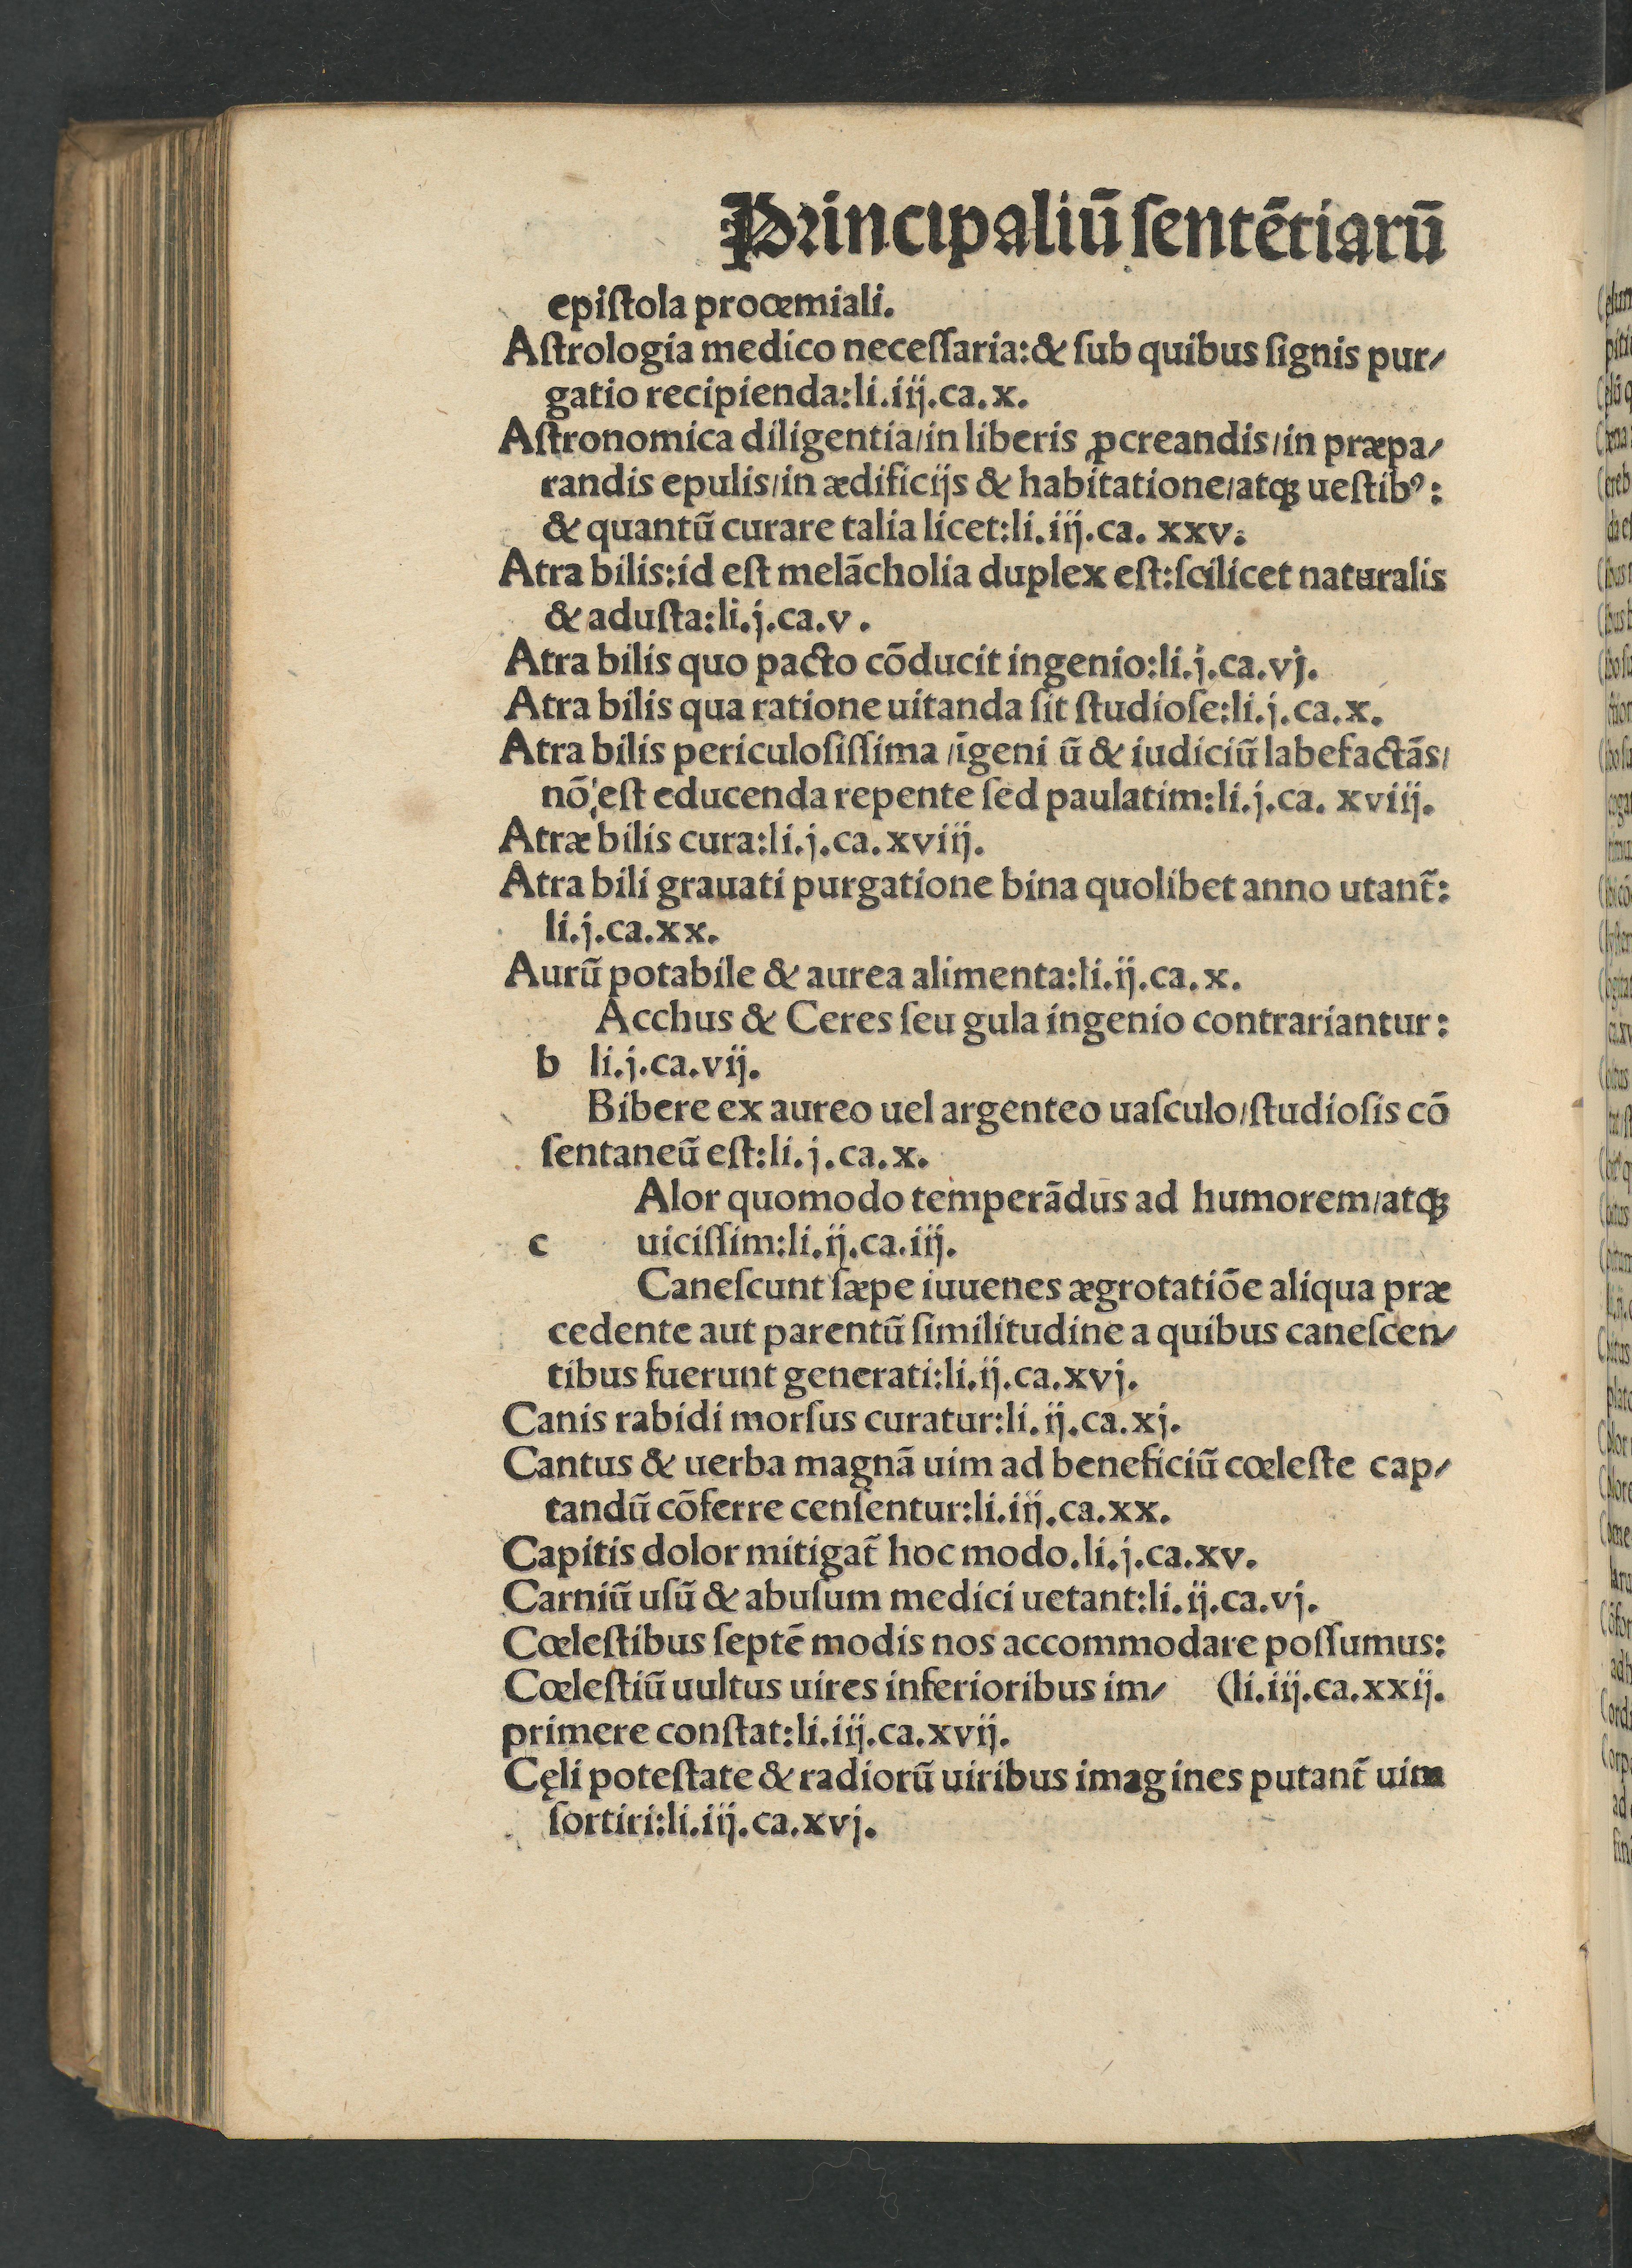 Principaliū ſentētiarū
epiſtola procœmiali.
Aſtrologia medico neceſſaria:& ſub quibus ſignis pur/
gatio recipienda:li.iij.ca.x.
Aſtronomica diligentia/in liberis ꝓcreandis/in præpa/
randis epulis/in ædificijs & habitatione/atqꝫ ueſtibꝰ:
& quantū curare talia licet:li.iij.ca. xxv.
Atra bilis:id eſt melācholia duplex eſt:ſcilicet naturalis
& aduſta:li.j.ca.v.
Atra bilis quo pacto cōducit ingenio:li.j.ca.vj.
Atra bilis qua ratione uitanda ſit ſtudioſe:li.j.ca.x.
Atra bilis periculoſiſſima /īgeni ū & iudiciū labefactās/
nō eſt educenda repente ſed paulatim:li.j.ca. xviij.
Atræ bilis cura:li.j.ca.xviij.
Atra bili grauati purgatione bina quolibet anno utant̄:
li.j.ca.xx.
Aurū potabile & aurea alimenta:li.ij.ca.x.
Acchus & Ceres ſeu gula ingenio contrariantur:
b li.j.ca.vij.
Bibere ex aureo uel argenteo uaſculo/ſtudioſis cō
ſentaneū eſt:li.j.ca.x.
Alor quomodo temperādus ad humorem/atqꝫ
c uiciſſim:li.ij.ca.iij.
Caneſcunt ſæpe iuuenes ægrotatiōe aliqua præ
cedente aut parentū ſimilitudine a quibus caneſcen/
tibus fuerunt generati:li.ij.ca.xvj.
Canis rabidi morſus curatur:li.ij.ca.xj.
Cantus & uerba magnā uim ad beneficiū cœleſte cap/
tandū cōferre cenſentur:li.iij.ca.xx.
Capitis dolor mitigat̄ hoc modo.li.j.ca.xv.
Carniū uſū & abuſum medici uetant:li.ij.ca.vj.
Cœleſtibus ſeptē modis nos accommodare poſſumus:
Cœleſtiū uultus uires inferioribus im/ (li.iij.ca.xxij.
primere conſtat:li.iij.ca.xvij.
Cęli poteſtate & radiorū uiribus imagines putant̄ uim
ſortiri:li.iij.ca.xvj.